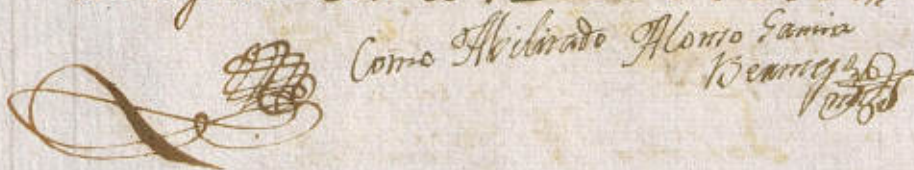 Como Abilitado Alonso Gamira
Bermejo